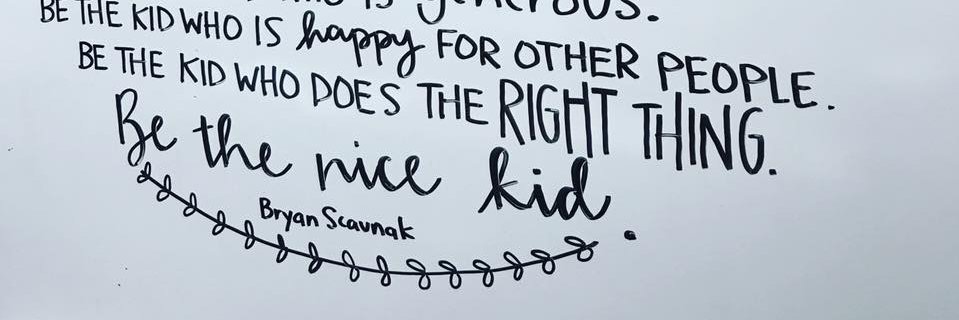 is generous.
BE THE KID WHO IS happy FOR OTHER PEOPLE.
BE THE KID WHO DOES THE RIGHT THING.
Be the nice kid.
Bryan Scavnak